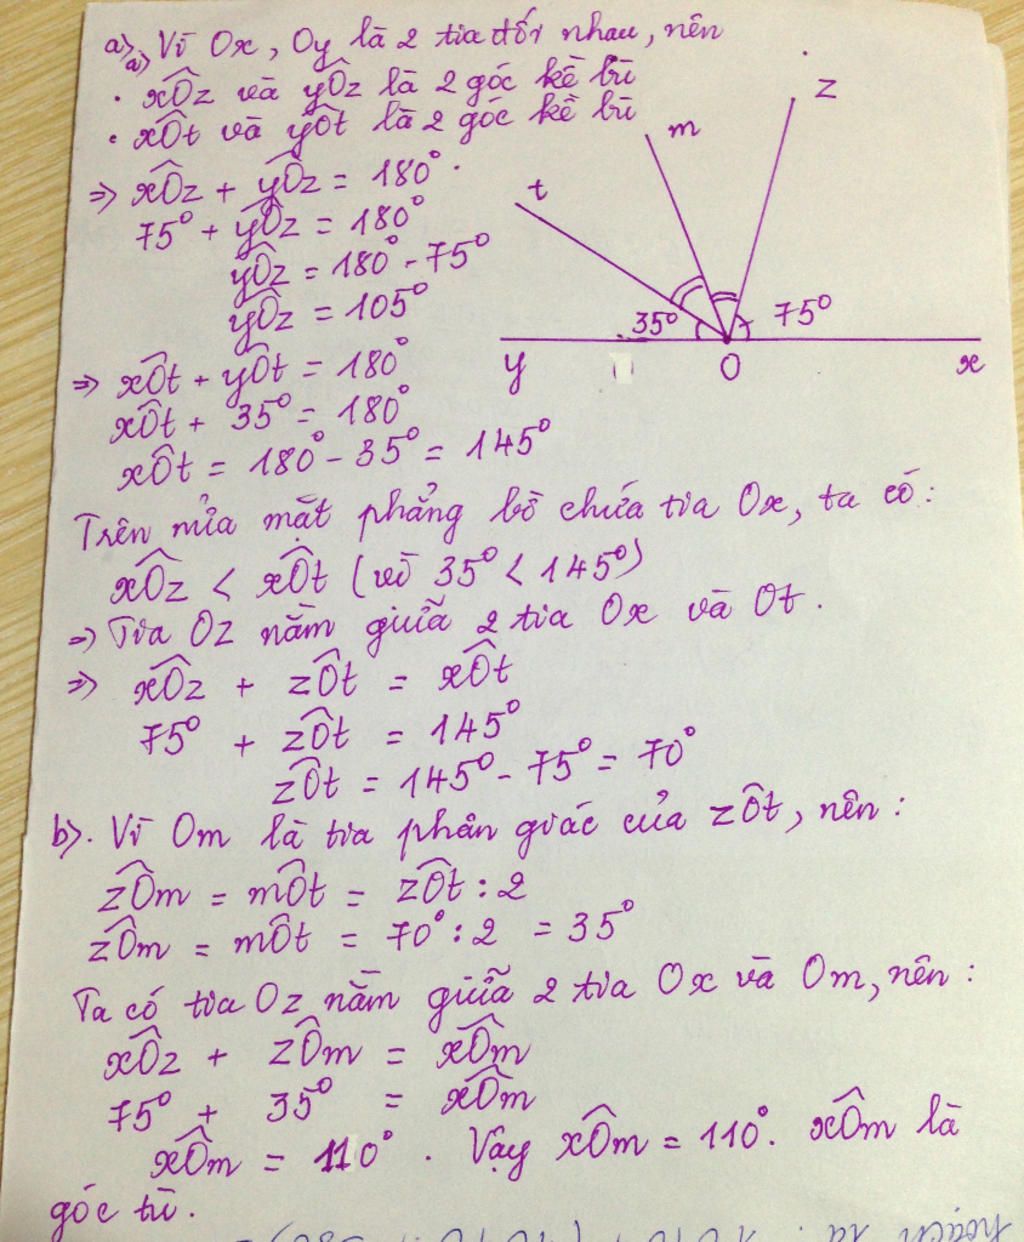 a) a) Vì Ox, Oy là 2 tia đối nhau, nên
. xÔz và yÔz là 2 góc kề bù
. xÔt và yÔt là 2 góc kề bù
=> xÔz + yÔz = 180°.
75° + yÔz = 180°
yÔz = 180° - 75°
yÔz = 105°
=> xÔt + yÔt = 180°
xÔt + 35° = 180°
xÔt = 180° - 35° = 145°
z
m
t
35°
75°
y
O
x
Trên nửa mặt phẳng bờ chứa tia Ox, ta có:
xÔz < xÔt (vì 35° < 145°)
=> Tia Oz nằm giữa 2 tia Ox và Ot.
=> xÔz + zÔt = xÔt
75° + zÔt = 145°
zÔt = 145° - 75° = 70°
b). Vì Om là tia phân giác của zÔt, nên:
zÔm = mÔt = zÔt : 2
zÔm = mÔt = 70° : 2 = 35°
Ta có tia Oz nằm giữa 2 tia Ox và Om, nên:
xÔz + zÔm = xÔm
75° + 35° = xÔm
xÔm = 110°. Vậy xÔm = 110°. xÔm là
góc tù.